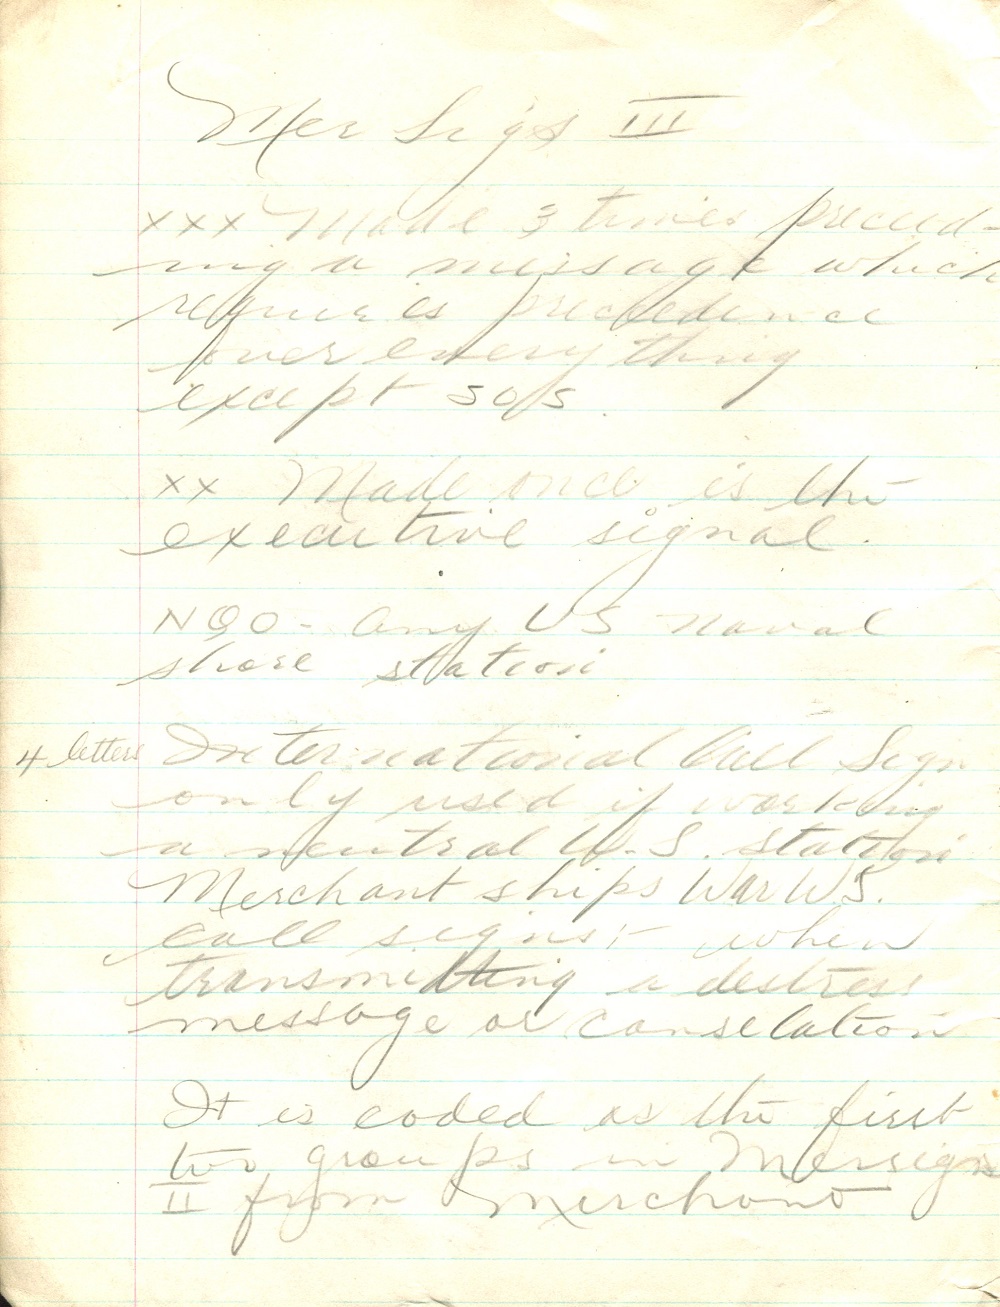 Mer Sigs III
xxx Made 3 times preceed-
ing a message which
requires precedence
over everything
except sos.
xx Made once is the
executive signal.
NQO - Any US naval
shore station
4 letters International Call Sign
only used if working
a neutral U.S. station
Merchant ships War W.S.
call signs when
transmitting a destress
message or canselation
It is coded as the first
two groups in Mersigs
II from Merchant